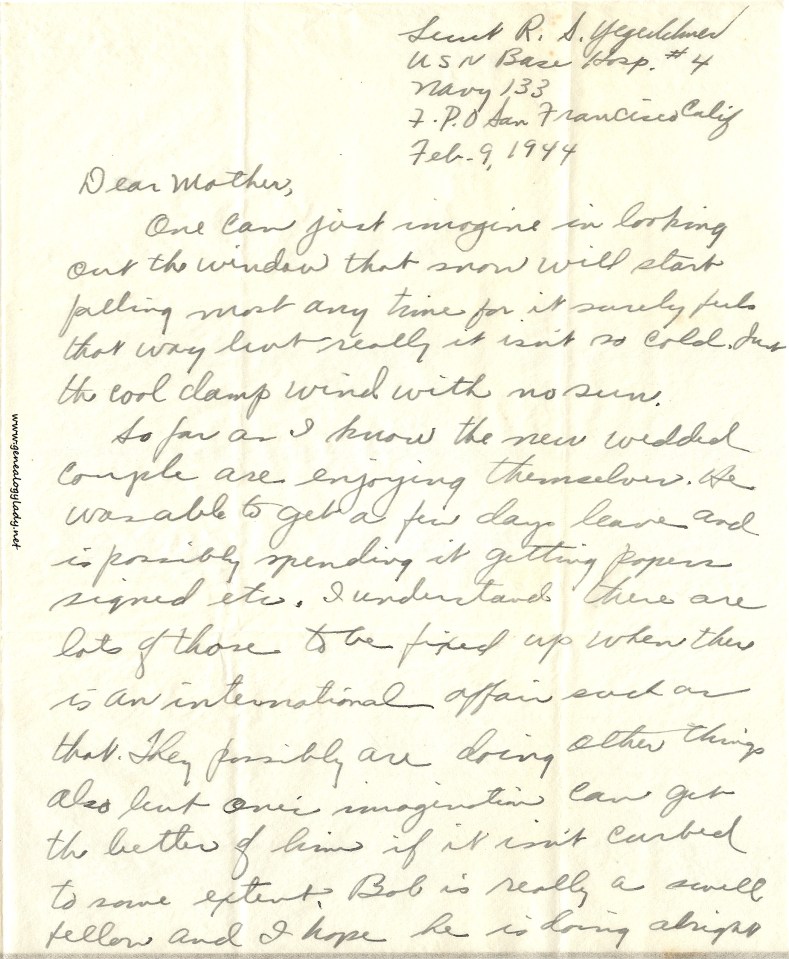 Lieut R. S. Yegerlehner
USN Base Hosp. #4
Navy 133
F.P.O San Francisco Calif
Feb. 9, 1944
Dear Mother,
One can just imagine in looking
out the window that snow will start
falling most any time for it surely feels
that way but really it isn't so cold. Just
the cool damp wind with no sun.
So far as I know the new wedded
couple are enjoying themselves. He
was able to get a few days leave and
is possibly spending it getting papers
signed etc. I understand there are
lots of those to be fixed up when there
is an international affair such as
that. They possibly are doing other things
also but one's imagination can get
the better of him if it isn't curbed
to some extent. Bob is really a swell
fellow and I hope he is doing alright
www.genealogylady.net